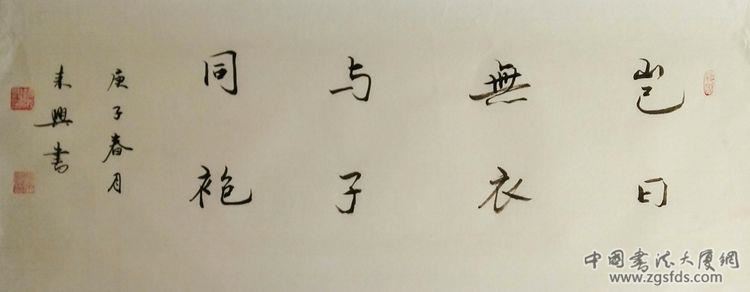 岂曰
無衣
与子
同袍
庚子春月
来興书
中国书法大厦網
www.zgsfds.com